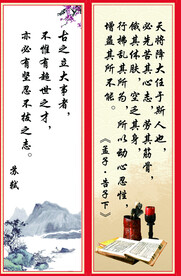 古之立大事者，
不惟有超世之才，
亦必有坚忍不拔之志。
苏轼
天将降大任于斯人也，
必先苦其心志，劳其筋骨，
饿其体肤，空乏其身，
行拂乱其所为，所以动心忍性，
增益其所不能。
《孟子·告子下》